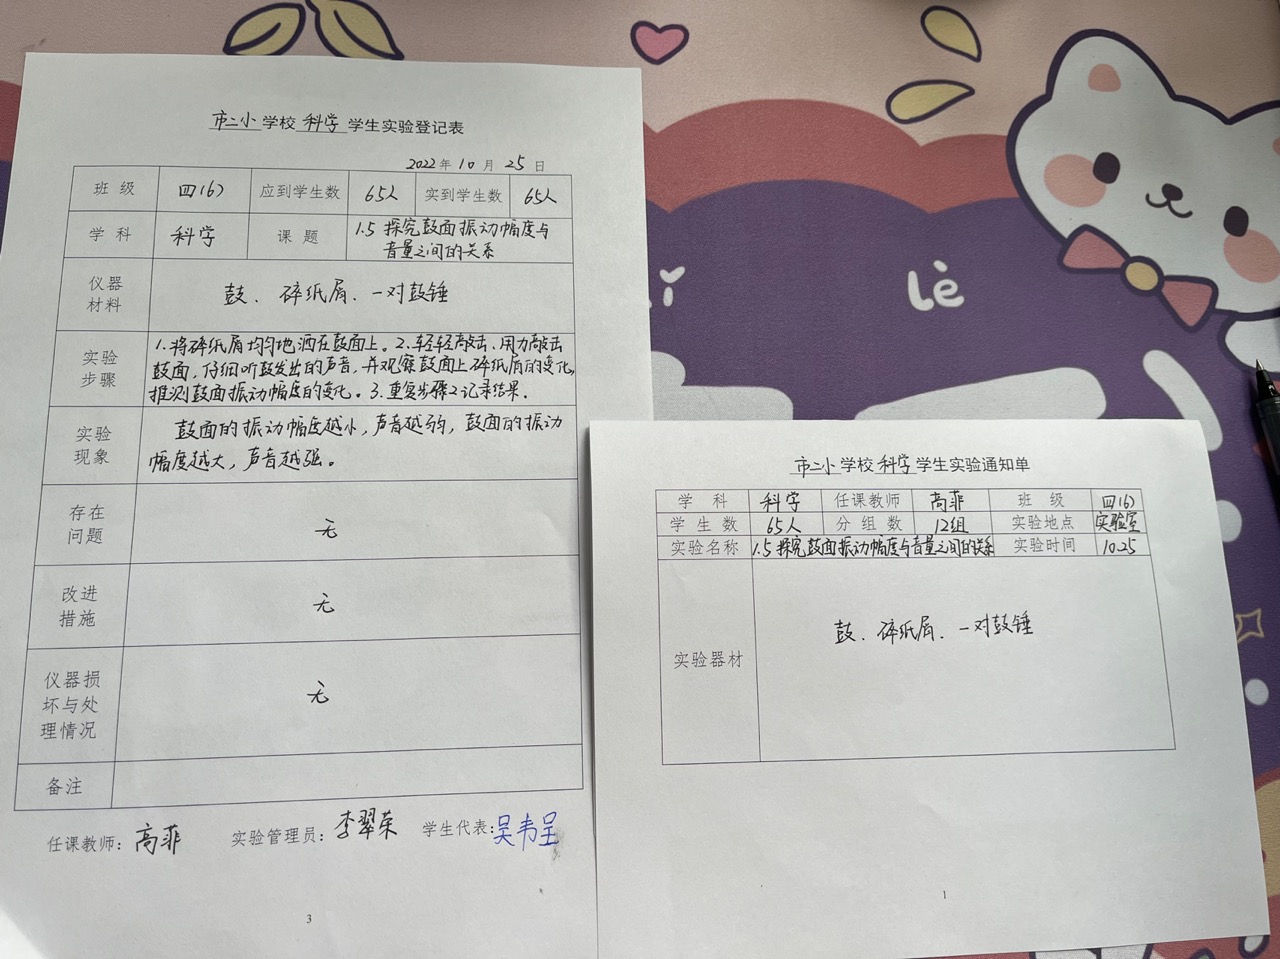 市二小学校科学学生实验登记表
2022年10月25日
班级 四(6) 应到学生数 65人 实到学生数 65人
学科 科学 课题 1.5 探究鼓面振动幅度与
音量之间的关系
仪器
材料
鼓、碎纸屑、一对鼓锤
实验
步骤
1.将碎纸屑均匀地洒在鼓面上。2.轻轻敲击、用力敲击
鼓面,仔细听鼓发出的声音,并观察鼓面上碎纸屑的变化,
推测鼓面振动幅度的变化。3.重复步骤2记录结果.
实验
现象
鼓面的振动幅度越小,声音越弱,鼓面的振动
幅度越大,声音越强。
存在
问题
无
改进
措施
无
仪器损
坏与处
理情况
无
备注
任课教师:高菲 实验管理员:李翠荣 学生代表:吴韦呈
3
Lè
市二小学校科学学生实验通知单
学科 科学 任课教师 高菲 班级 四(6)
学生数 65人 分组数 12组 实验地点 实验室
实验名称 1.5探究鼓面振动幅度与音量之间的关系 实验时间 10.25
实验器材
鼓、碎纸屑、一对鼓锤
1